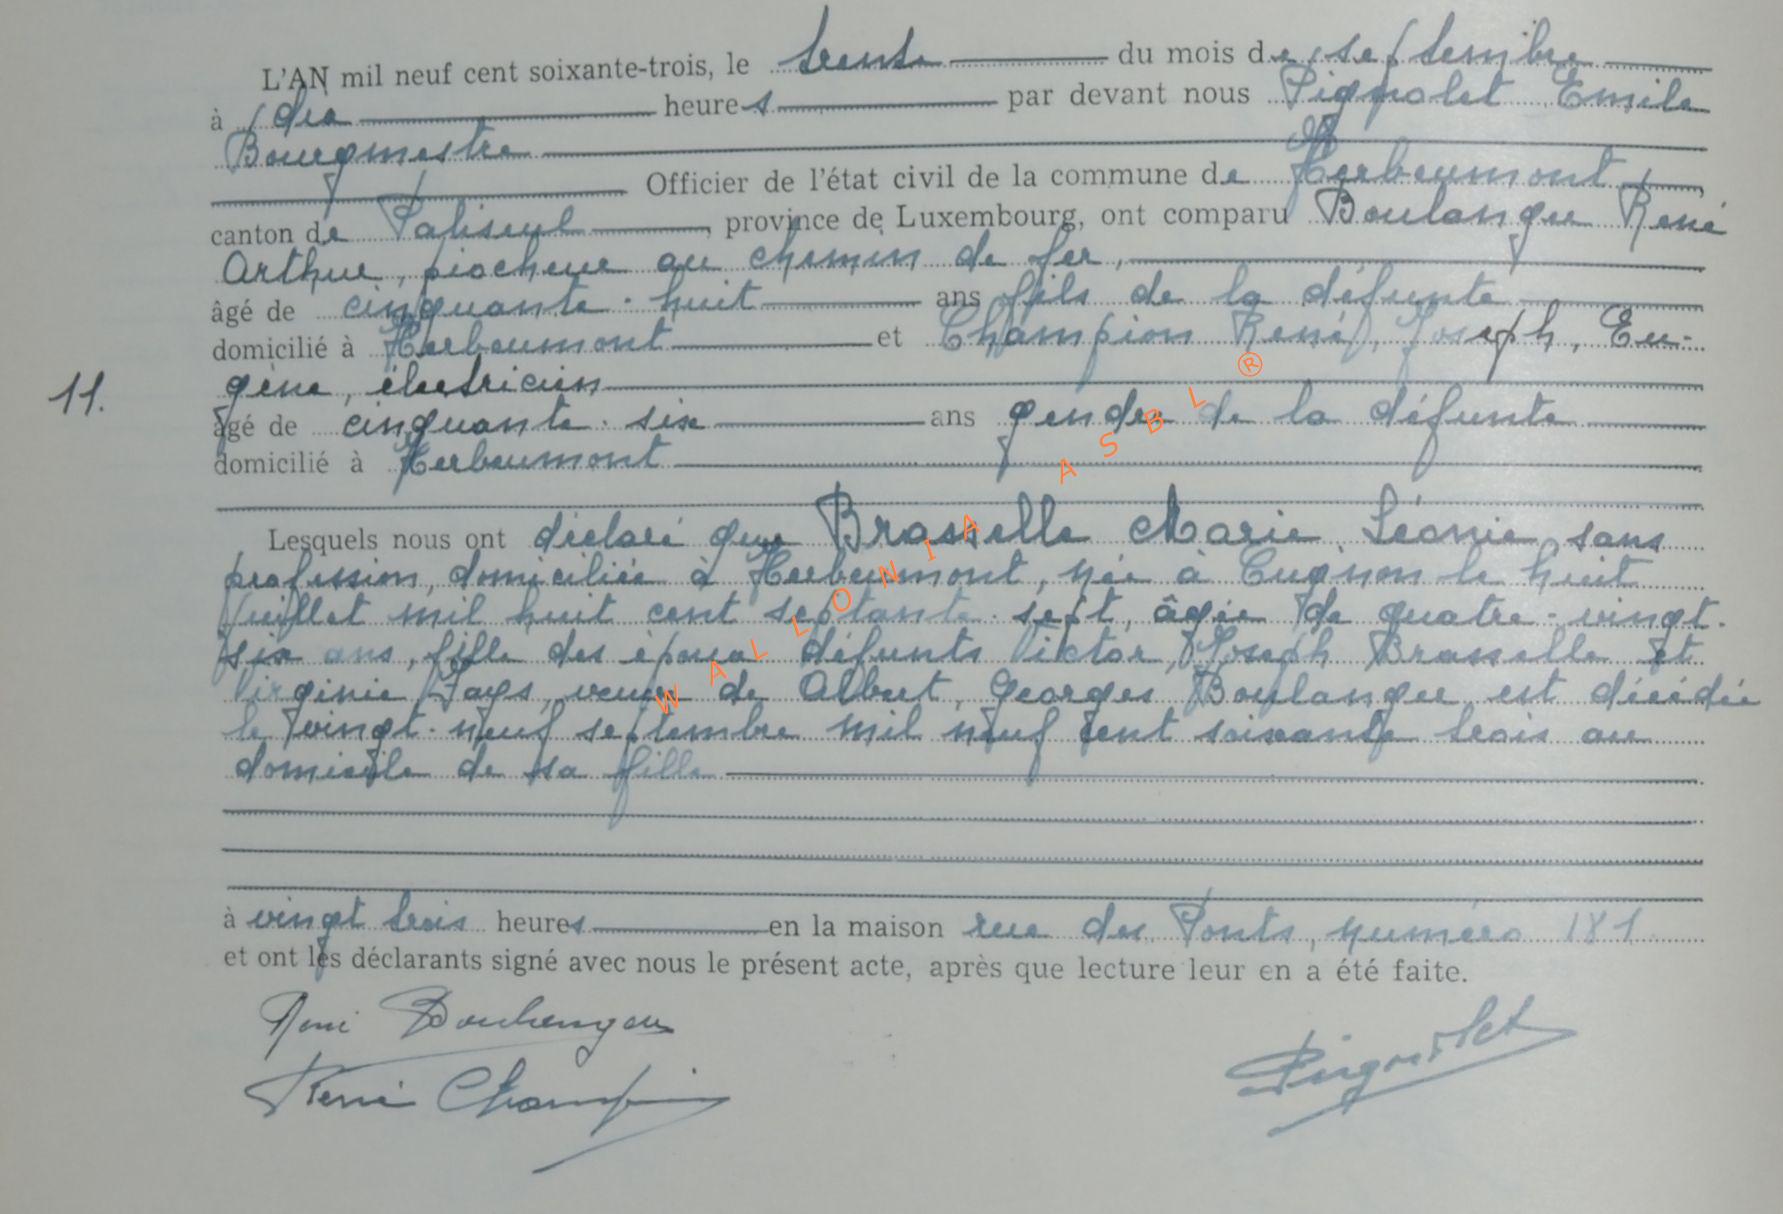 L'AN mil neuf cent soixante-trois, le trente du mois de septembre
à dix heures par devant nous Pignolet Emile
Bourgmestre
Officier de l'état civil de la commune de Herbeumont
canton de Paliseul, province de Luxembourg, ont comparu Boulanger René
Arthur, piocheur au chemin de fer,
âgé de cinquante-huit ans fils de la défunte
domicilié à Herbeumont et Champion René, Joseph, Eu-
gène, électricien
11.
âgé de cinquante-six ans gendre de la défunte
domicilié à Herbeumont
Lesquels nous ont déclaré que Brasselle Marie Léonie sans
profession, domiciliée à Herbeumont, née à Cugnon le huit
juillet mil huit cent septante-sept, âgée de quatre-vingt-
six ans, fille des époux défunts Victor, Joseph Brasselle et
Virginie Jays, veuve de Albert, Georges Boulanger est décédée
le vingt-neuf septembre mil neuf cent soixante trois au
domicile de sa fille
à vingt trois heures en la maison rue des Ponts, numéro 181
et ont les déclarants signé avec nous le présent acte, après que lecture leur en a été faite.
René Boulanger
René Champion
Pignolet
WALLONIA ASBL ®